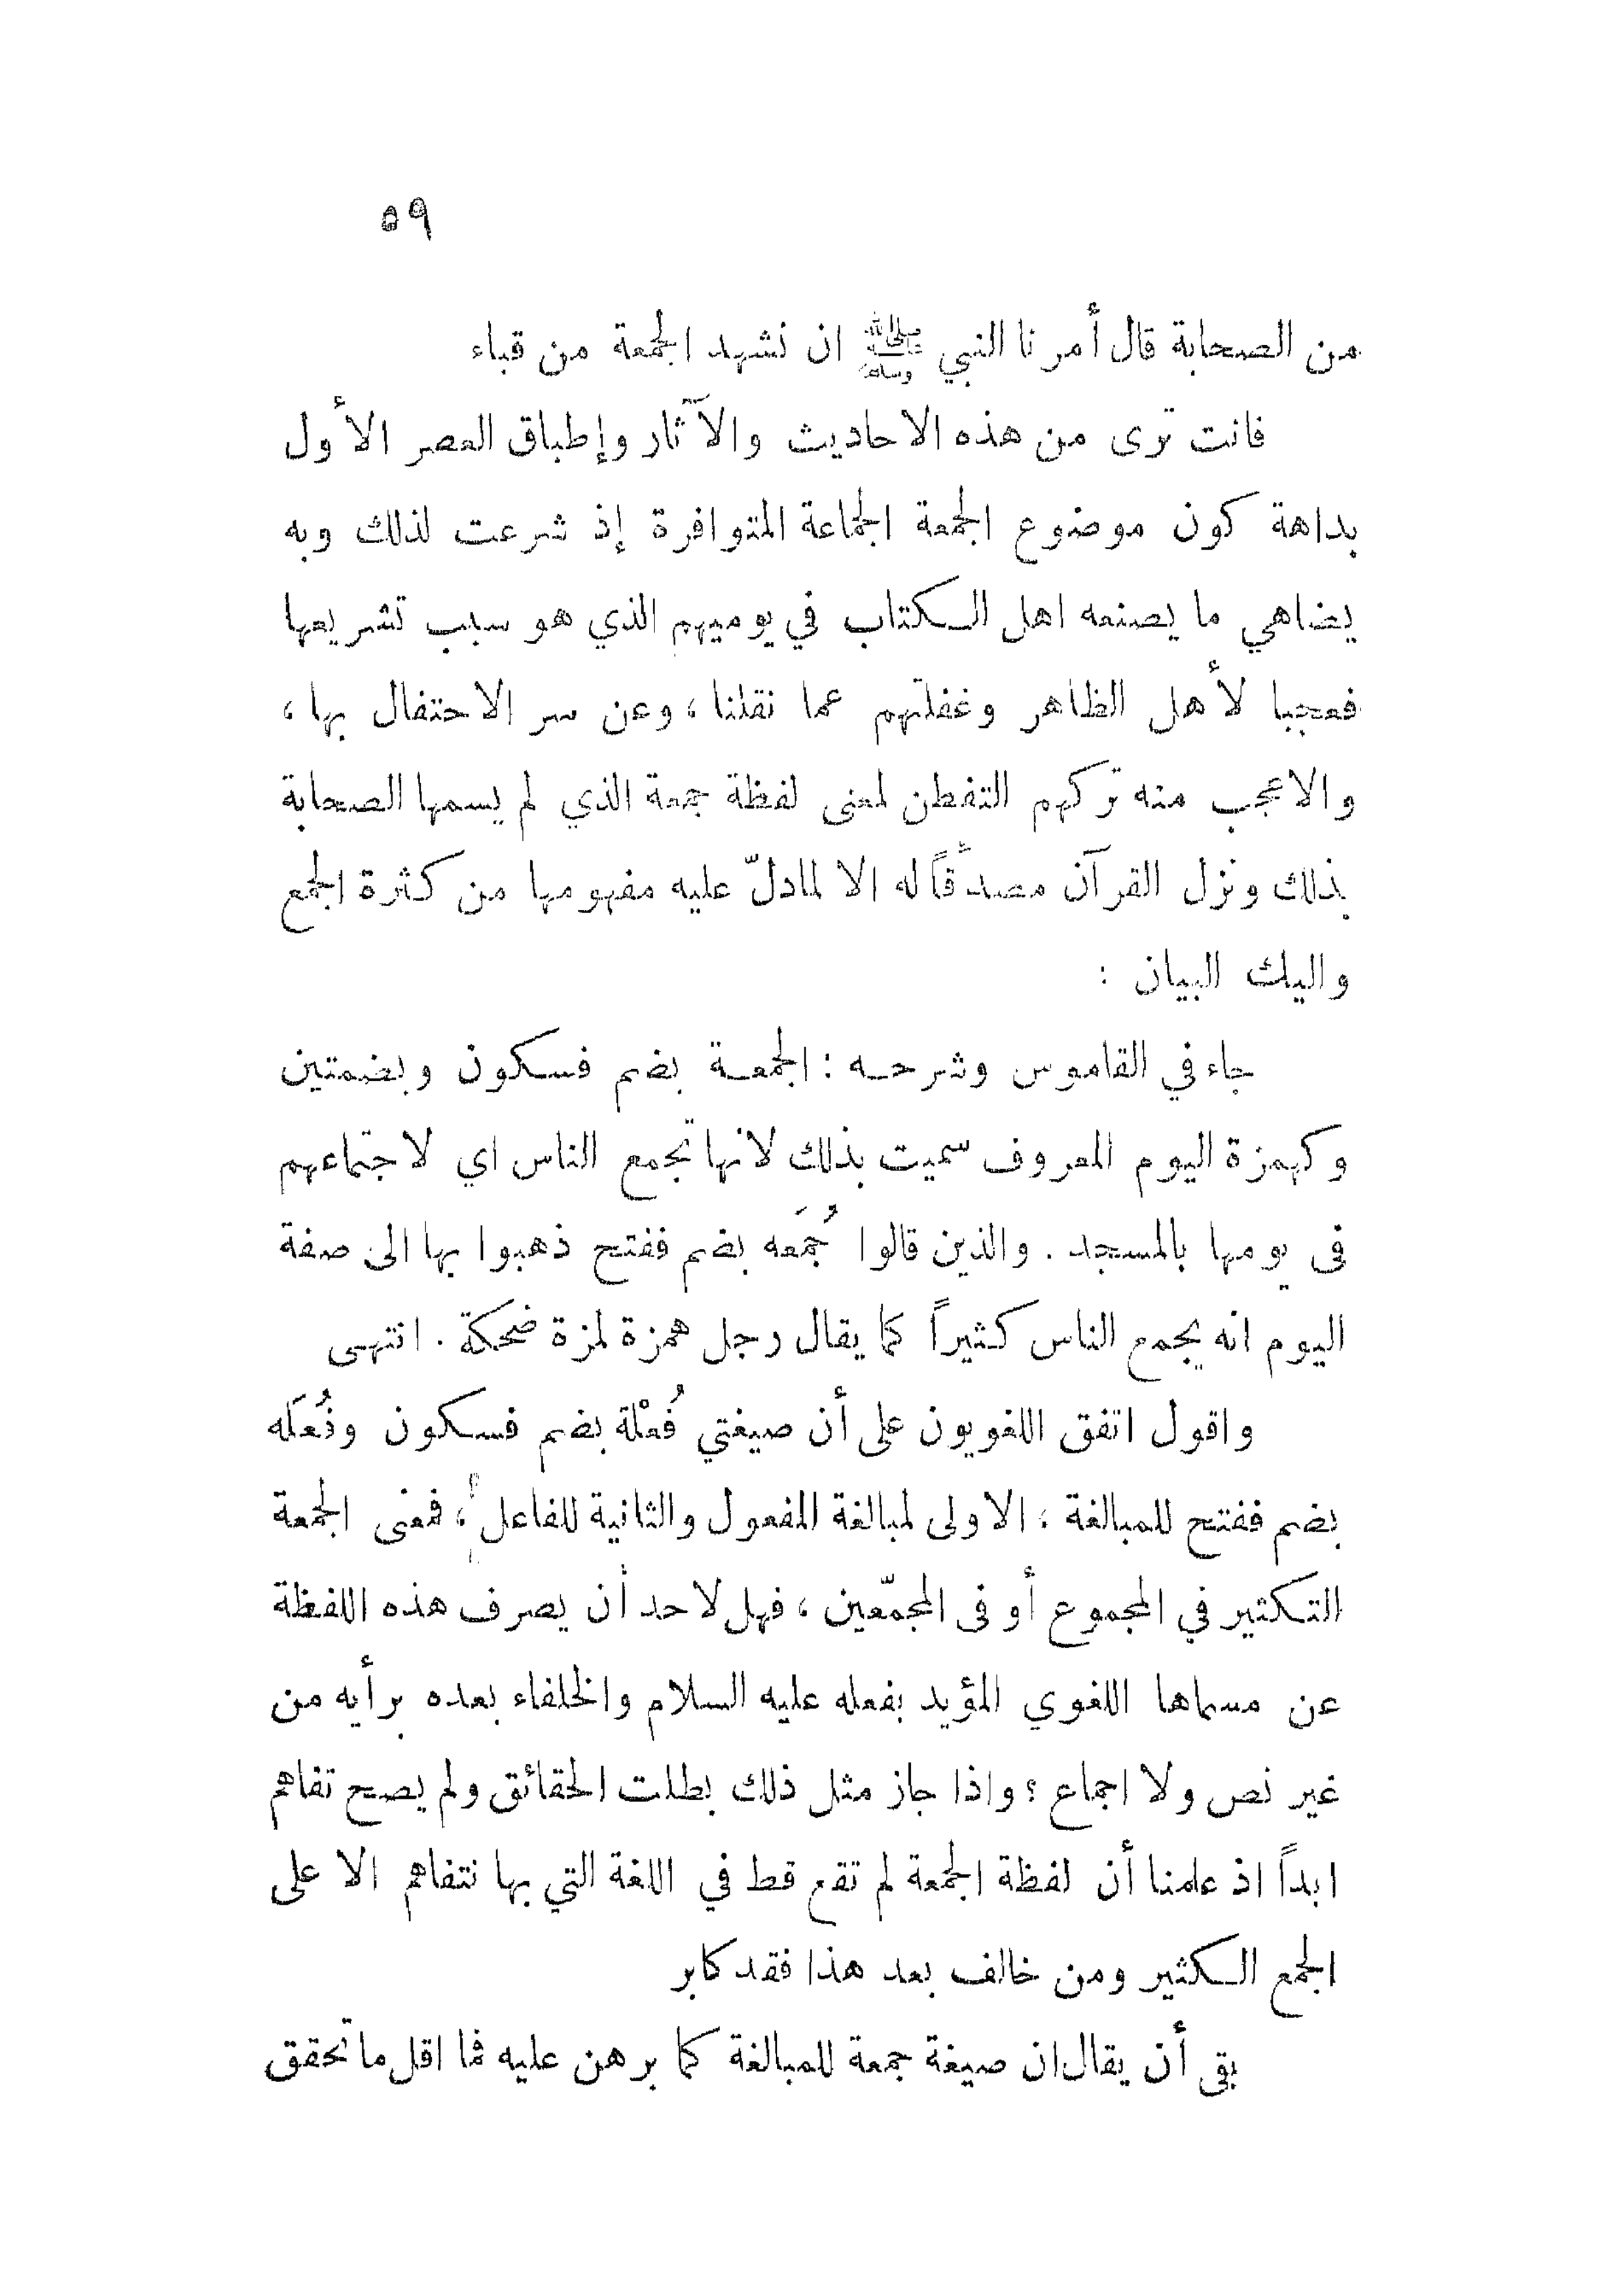 ٥٩
من الصحابة قال أمرنا النبي ﷺ ان نشهد الجمعة من قباء
فانت ترى من هذه الاحاديث والآثار وإطباق العصر الأول
بداهة كون موضوع الجمعة الجماعة المتوافرة إذ شرعت لذلك وبه
يضاهي ما يصنعه اهل الكتاب في يوميهم الذي هو سبب تشريعها
فعجبا لأهل الظاهر وغفلتهم عما نقلنا، وعن سر الاحتفال بها،
والاعجب منه تركهم التفطن لمعنى لفظة جمعة الذي لم يسمها الصحابة
بذلك ونزل القرآن مصدقاً له الا لمادلّ عليه مفهومها من كثرة الجمع
واليك البيان :
جاء في القاموس وشرحه : الجمعة بضم فسكون وبضمتين
وكهمزة اليوم المعروف سميت بذلك لانها تجمع الناس اي لاجتماعهم
فى يومها بالمسجد . والذين قالوا جُمَعه بضم ففتح ذهبوا بها الى صفة
اليوم انه يجمع الناس كثيراً كما يقال رجل همزة لمزة ضحكة . انتهى
واقول اتفق اللغويون على أن صيغتي فُعْلة بضم فسكون وفُعَله
بضم ففتح للمبالغة ، الاولى لمبالغة المفعول والثانية للفاعل ، فمعنى الجمعة
التكثير في المجموع أو فى المجمّعين ، فهل لاحد أن يصرف هذه اللفظة
عن مسماها اللغوي المؤيد بفعله عليه السلام والخلفاء بعده برأيه من
غير نص ولا اجماع ؟ واذا جاز مثل ذلك بطلت الحقائق ولم يصح تفاهم
ابداً اذ علمنا أن لفظة الجمعة لم تقع قط في اللغة التي بها نتفاهم الا على
الجمع الكثير ومن خالف بعد هذا فقد كابر
بقى أن يقال ان صيغة جمعة للمبالغة كما برهن عليه فما اقل ما تحقق